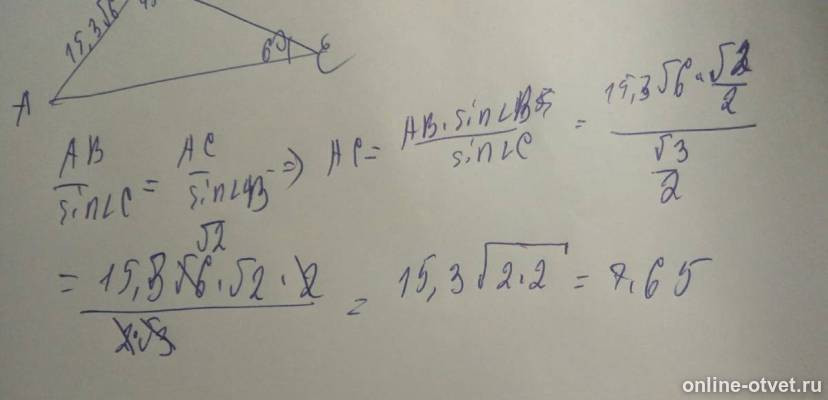 15,3√6 45
60 C
A
AB/sin∠C = AC/sin∠B => AC = AB·sin∠B/sin∠C = (15,3√6 · √2/2)/(√3/2)
= 15,3√6·√2·2/2·√3 = 15,3√2·2 = 7.65
√2
online-otvet.ru